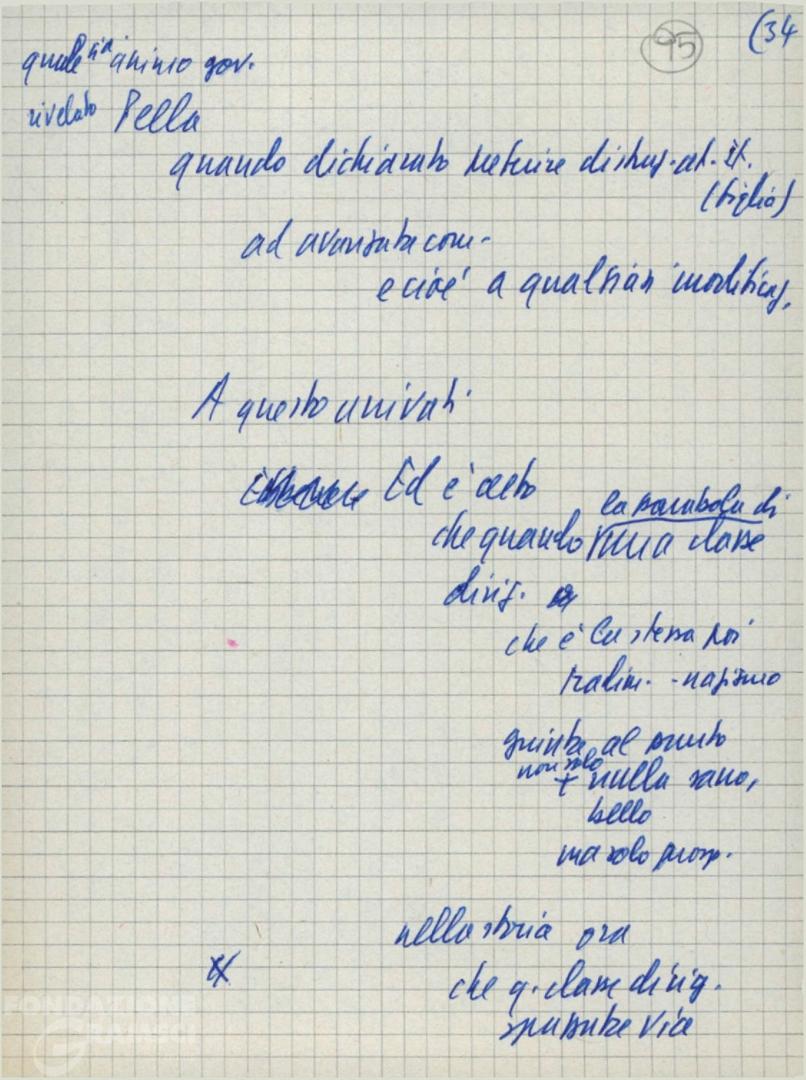 95
(34
quale sia animo gov.
rivelato Pella
quando dichiarato preferire distruz. at. it.
(figlio)
ad avanzata com.
e cioè a qualsiasi modificaz.
A questo arrivati
Ed è certo
che quando la parabola di una classe
dirig.
che è la stessa poi
tradim. - nazismo
giunta al punto
non solo + nulla sano,
bello
ma solo prop.
nella storia ora
che q. classe dirig.
spazzata via
FONDAZIONE
GRAMSCI